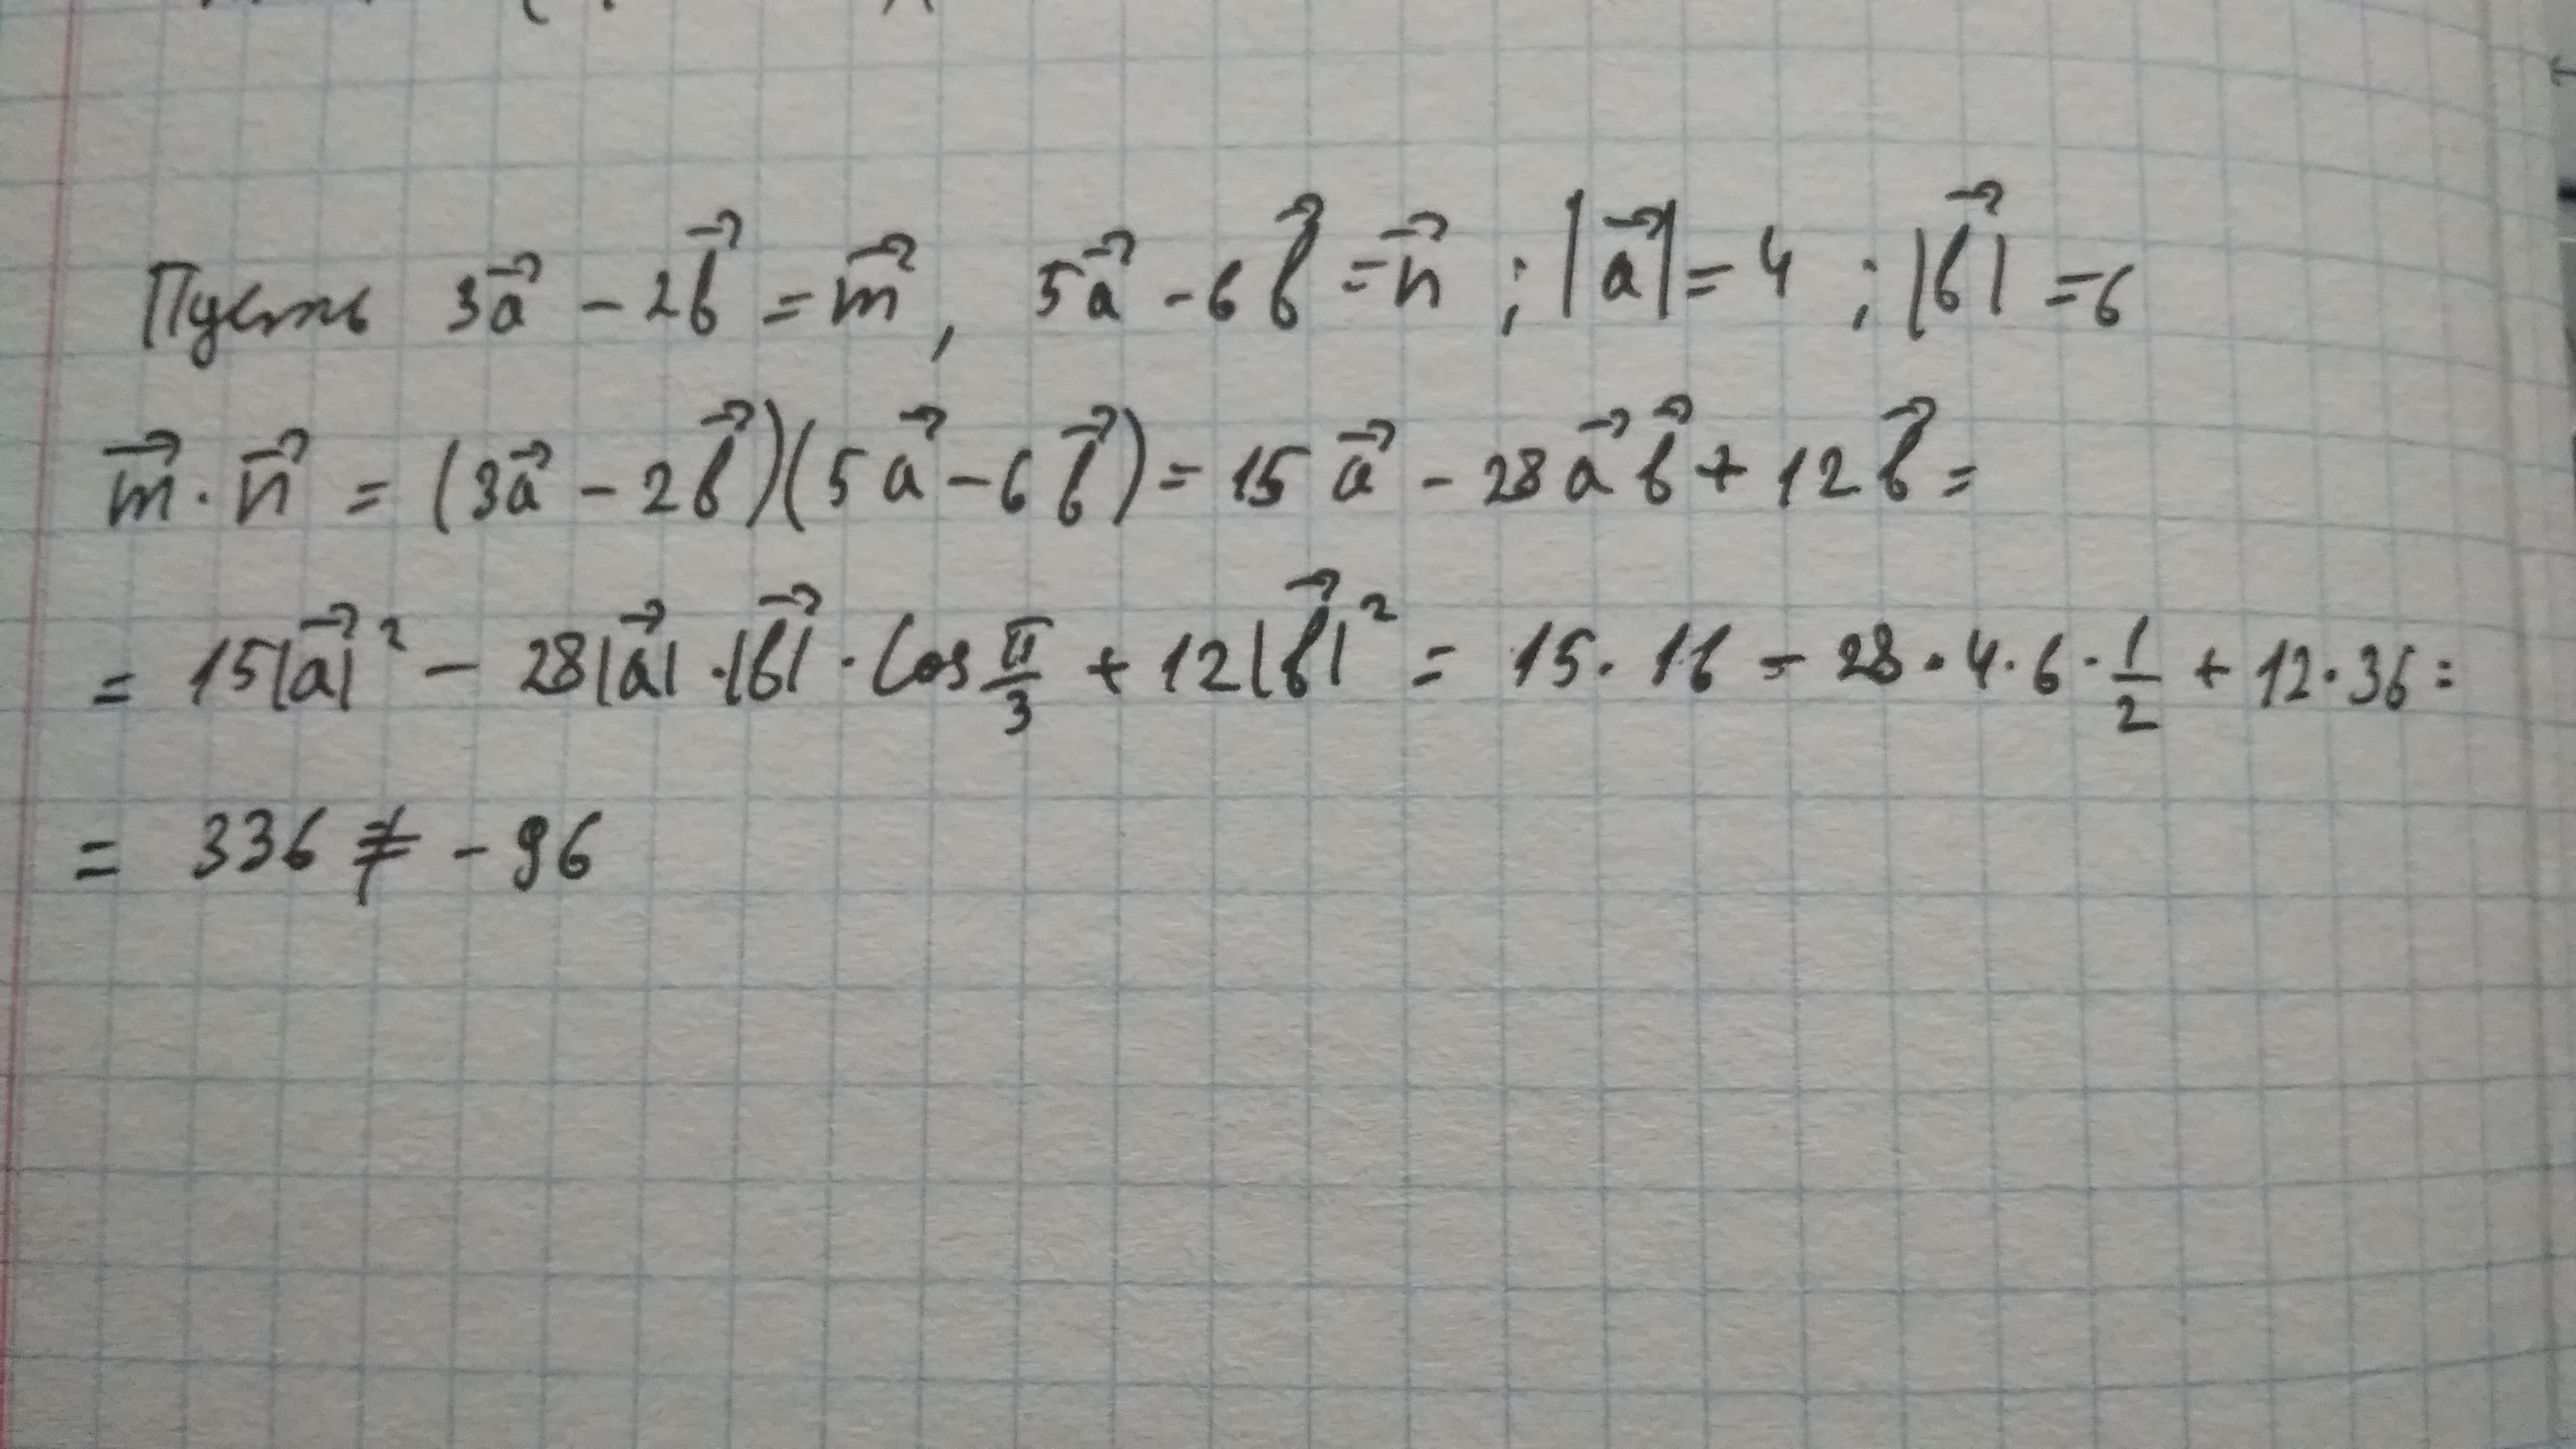 Пусть 3a⃗ - 2b⃗ = m⃗, 5a⃗ - 6b⃗ = n⃗ ; |a⃗| = 4 ; |b⃗| = 6
m⃗ · n⃗ = (3a⃗ - 2b⃗)(5a⃗ - 6b⃗) = 15a⃗ - 28a⃗b⃗ + 12b⃗ =
= 15|a⃗|² - 28|a⃗| · |b⃗| · Cos π/3 + 12|b⃗|² = 15 · 16 - 28 · 4 · 6 · 1/2 + 12 · 36 =
= 336 ≠ - 96